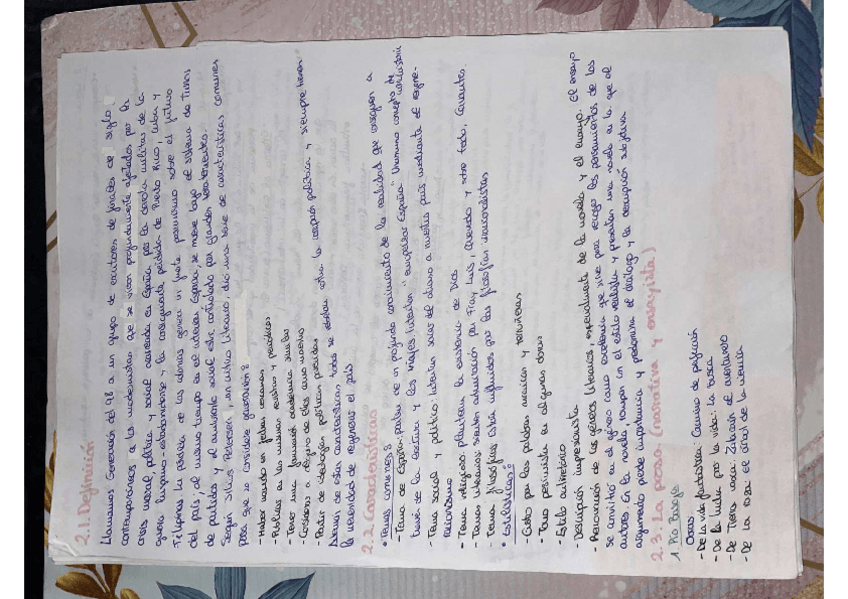 2.1. Definición
Llamamos Generación del 98 a un grupo de escritores de finales de siglo,
contemporáneos a los modernistas que se vieron profundamente afectados por la
crisis moral, política y social acarreada en España por la derrota militar de la
guerra hispano-estadounidense y la consiguiente pérdida de Puerto Rico, Cuba y
Filipinas. La pérdida de las colonias genera un fuerte pesimismo sobre el futuro
del país; al mismo tiempo en el interior España, se mueve bajo el sistema de turnos
de partidos y el ambiente social está controlado por grandes terratenientes.
Según Julius Petersen, un crítico literario, dió una serie de características comunes
para que se considere generación:
- Haber nacido en fechas cercanas
- Publicar en las mismas revistas y periódicos
- Tener una formación académica similar
- Considerar a alguno de ellos como maestro
- Partir de ideologías políticas parecidas
Además de estas características todos se rebelan contra la corrupción política y siempre tienen
la necesidad de regenerar el país
2.2 Características
• Temas comunes:
- Tema de España: parten de un profundo conocimiento de la realidad que consiguen a
través de la lectura y los viajes. Intentan "europeizar España". Unamuno concepto de
- Tema social y político: intentan sacar del abismo a nuestro país mediante el regene-
racionismo
- Tema religioso: plantean la existencia de Dios
- Temas literarios: sienten admiración por Fray Luis, Quevedo y, sobre todo, Cervantes.
- Tema filosófico: están influidos por las filosofías irracionalistas
• Estilísticas:
- Gusto por las palabras arcaicas y terruñeras
- Tono pesimista en algunas obras
- Estilo antirretórico
- Descripción impresionista
- Renovación de los géneros literarios, especialmente de la novela y el ensayo. El ensayo
se convirtió en el género como excelencia que sirve para recoger los pensamientos de los
autores. En la novela, rompen con el estilo realista y presentan una novela en la que el
argumento pierde importancia y predomina el diálogo y la descripción subjetiva
2.3. La prosa (narrativa y ensayista)
1. Pío Baroja
Obras
- De la vida fantástica: Camino de perfección
- De la lucha por la vida: La busca
- De Tierra vasca: Zalacaín el aventurero
- De la raza: el árbol de la ciencia